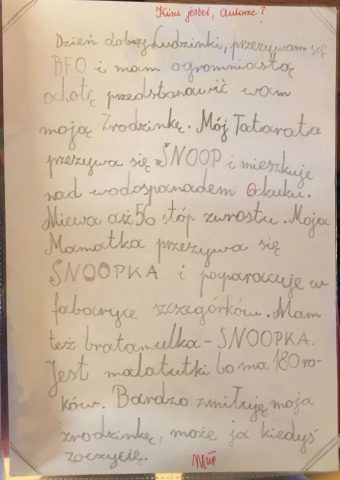 Kim jesteś, autorze?
Dzień dobry Ludzinki, przezywam się
BFO i mam ogromniastą
ochotę przedstanawić wam
moją Zrodzinkę. Mój Tatarata
przezywa się SNOOP i mieszkuje
nad wodospanadem Gckuku.
Miewa aż 50 stóp zwrostu. Moja
Mamatka przezywa się
SNOOPKA i poparaccuje w
fabacryce szczegórków. Mam
też bratamulka - SNOOPKA.
Jest malatutki bo ma 180 ro-
ków. Bardzo zmiłuję moja
zrodzinkę, może ja kiedyś
zoczycie.